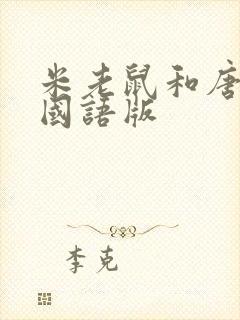 米老鼠和唐
國語版
李克